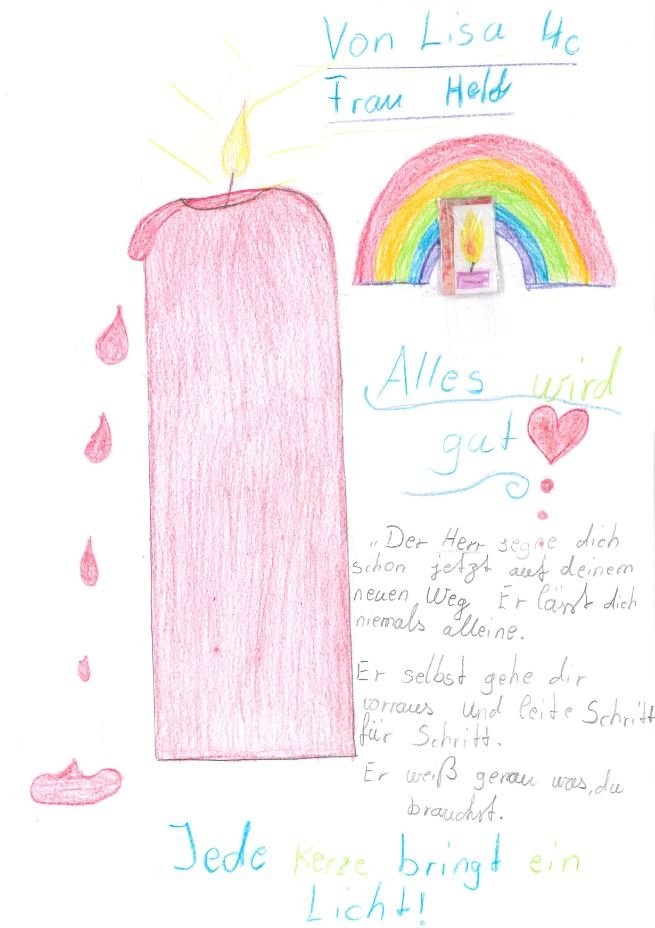 Von Lisa 4c
Frau Held
Alles wird
gut
„Der Herr segne dich
schon jetzt auf deinem
neuen Weg Er lässt dich
niemals alleine.
Er selbst gehe dir
vorraus und leite Schritt
für Schritt.
Er weiß genau was, du
brauchst.
Jede Kerze bringt ein
Licht!